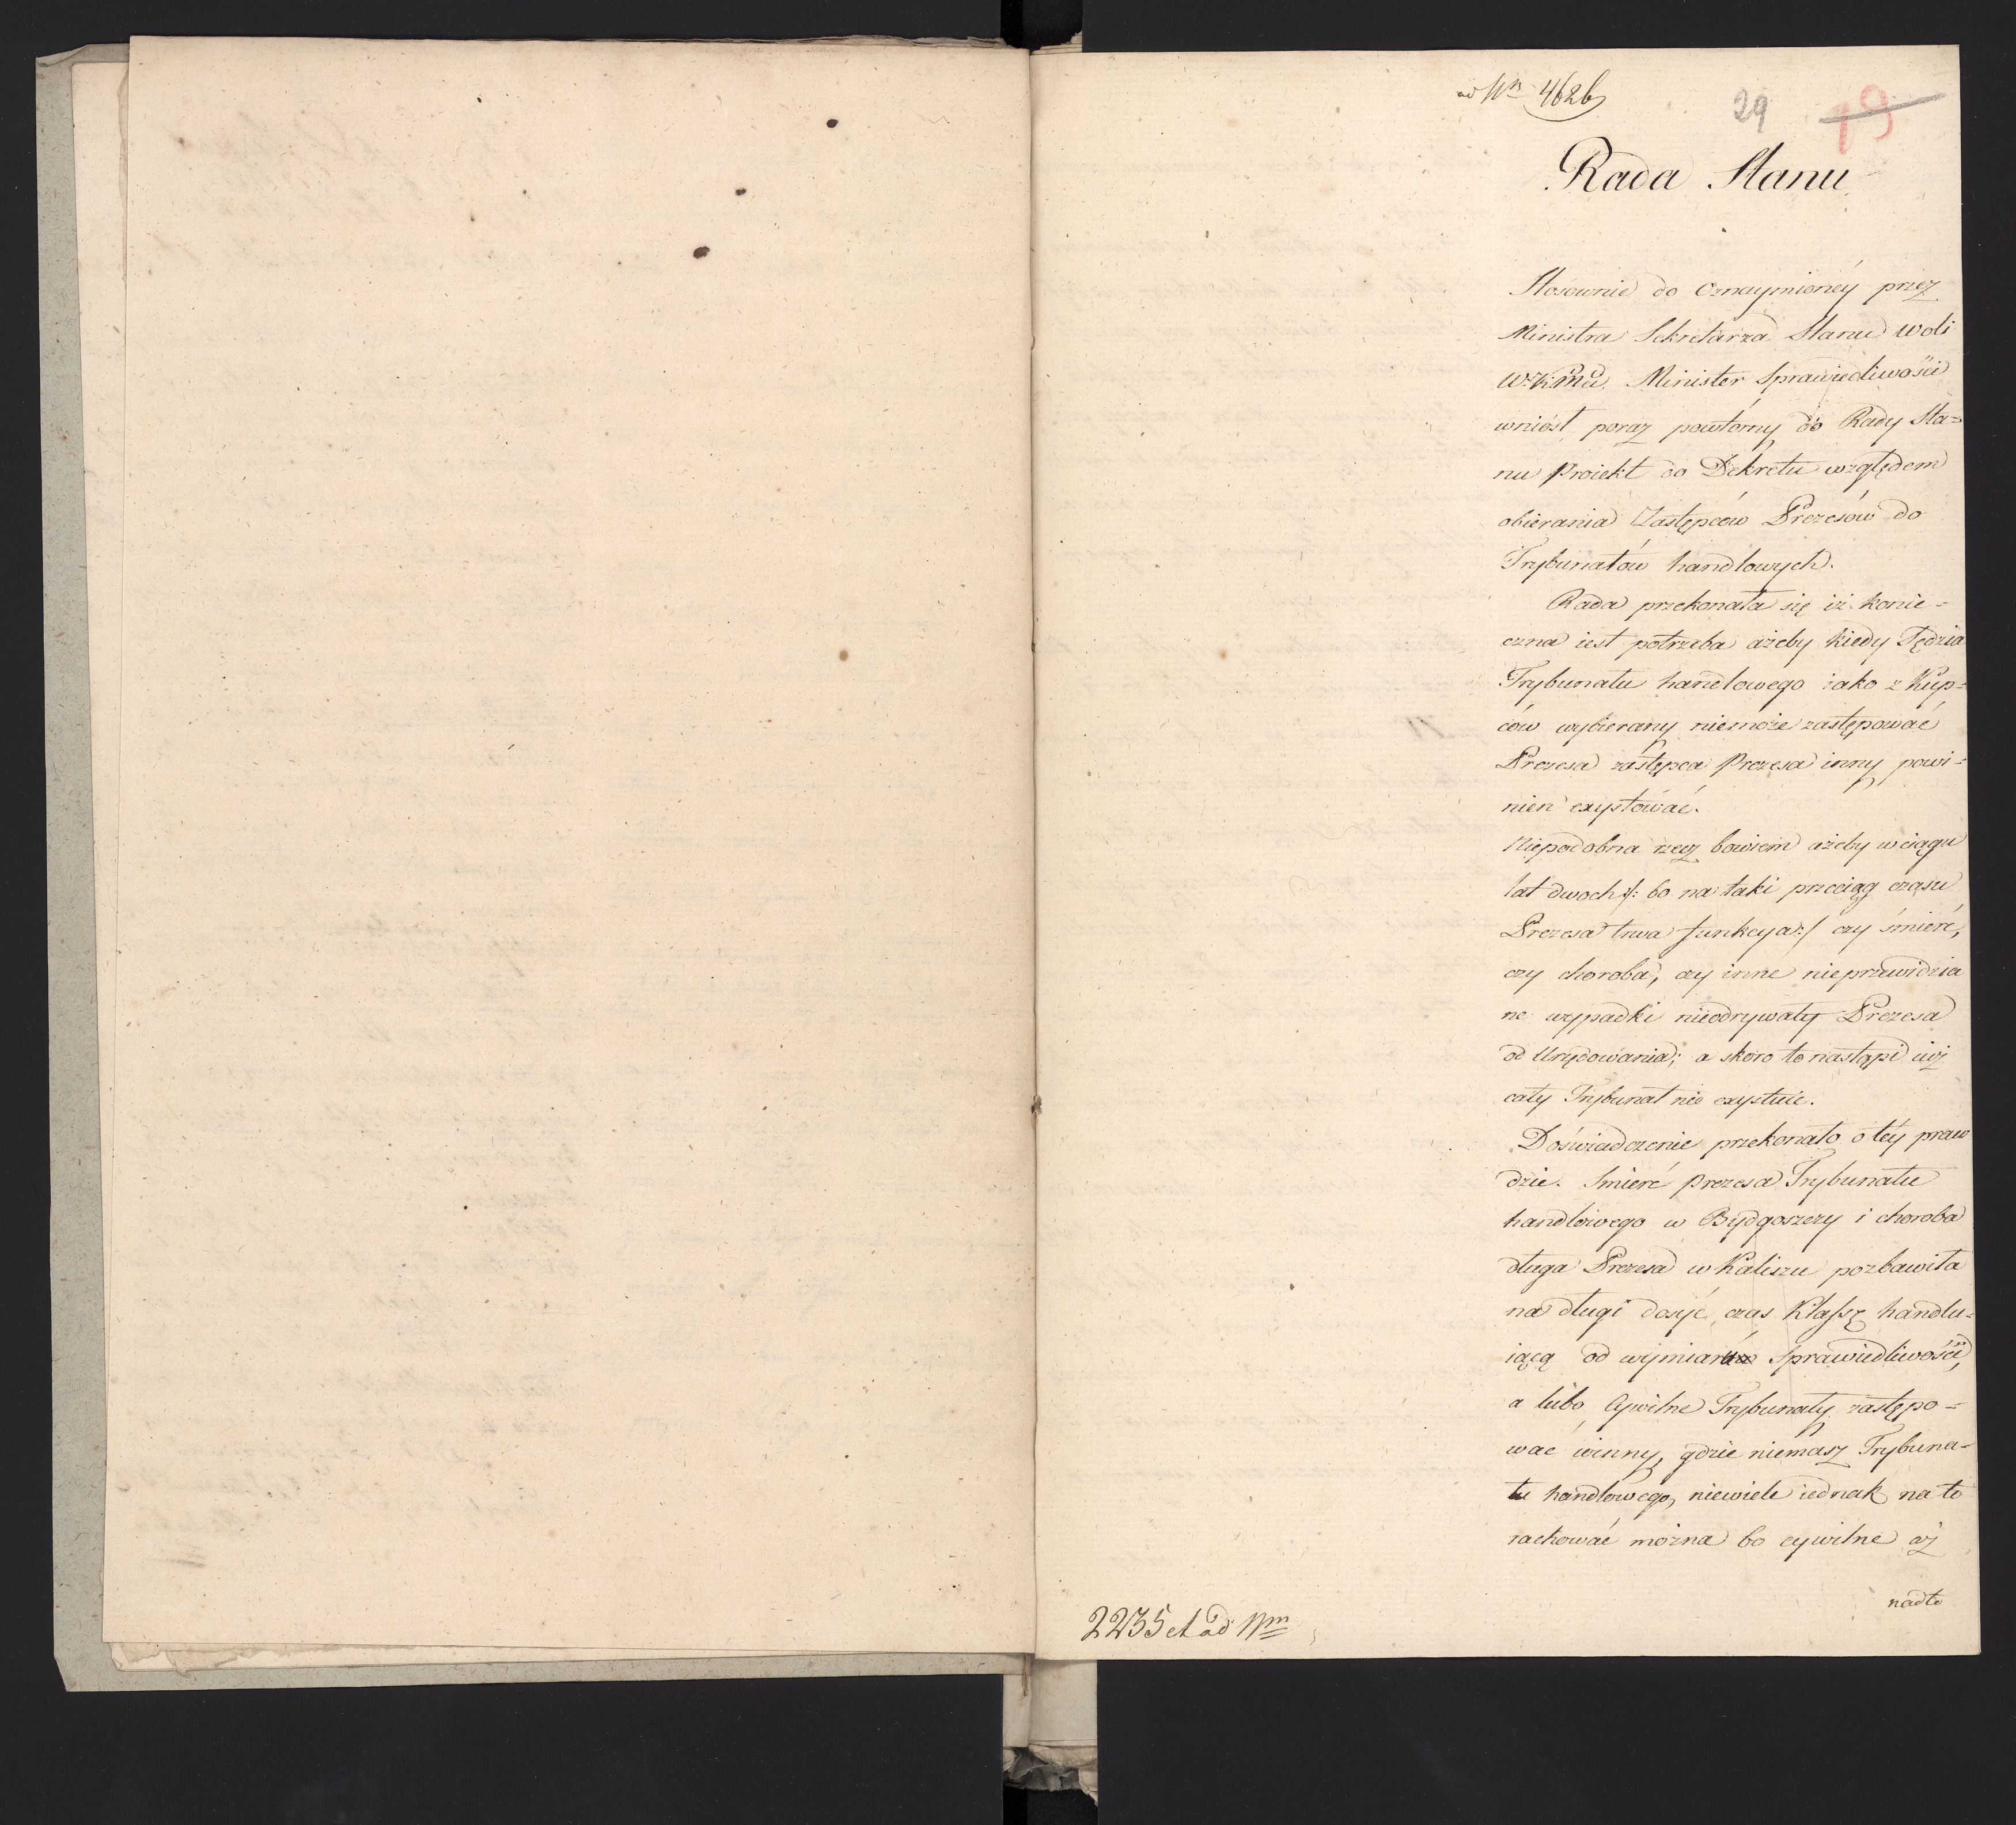 ad Nrm 462b
29 19
Rada Stanu
Stosownie do Oznaymionéy przez
Ministra Sekretarza Stanu woli
WKMci Minister Sprawiedliwości
wniósł poraz powtórny do Rady Sta=
nu Proiekt do Dekretu względem
obierania Zastępców Prezesów do
Trybunałów handlowych.
Rada przekonała się iż konie-
czna iest potrzeba ażeby kiedy Sędzia
Trybunału handlowego iako z Kup=
ców wybierany niemoże zastępować
Prezesa zastępca Prezesa inny powi=
nien exystować.
Niepodobna rzecz bowiem ażeby w ciągu
lat dwoch /: bo na taki przeciąg czasu
Prezesa trwa funkcya :/ czy śmierć,
czy choroba, czy inne nieprzewidzia
ne wypadki nieodrywały Prezesa
od Urzędowania; a skoro to nastąpi iuż
cały Trybunał nie exystuie.
Doświadczenie przekonało o téy praw
dzie. Smierć Prezesa Trybunału
handlowego w Bydgoszczy i choroba
długa Prezesa w Kaliszu pozbawiła
na długi dosyć czas Klassę handlu-
iącą od wymiaru Sprawiedliwości,
a lubo Cywilne Trybunały zastępo-
wać winny, gdzie niemasz Trybuna-
łu handlowego, niewiele iednak na to
rachować można bo cywilne aż
nadto
2235 et ad Nrm